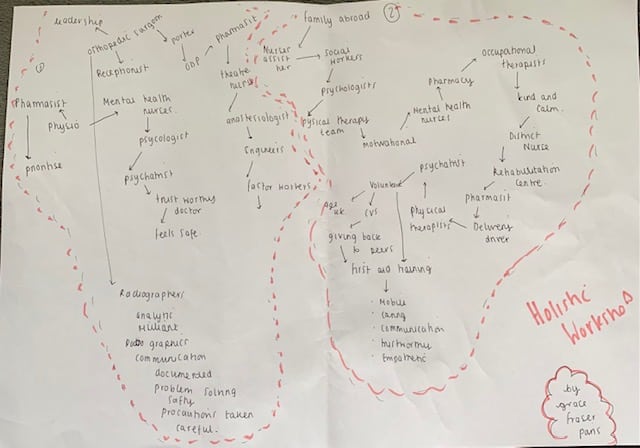 ①
leadership
orthopedic surgeon
porter
Pharmasist
Receptionist
ODP
theatre
nurse
Pharmasist
Mental health
nurses
Physio
prioritise
psycologist
psychatrist
trust worthy
doctor
feels safe
anathesiologist
Engineers
factor workers
Radiographers
analytic
Militant
graphics
communication
documented
problem solving
safty
precautions taken
careful.
②
family abroad
Nurses
assist
her
Social
workers
psychologists
pysical therapy
team
motivational
Mental health
nurses
Pharmacy
Occupational
therapists
kind and
calm.
District
Nurse
Rehabilitation
Centre.
Pharmasist
Delivery
driver
physical
therapists
psychatrist
Volunteer
age
uk
CVS
giving back
to peers
first aid training
· Mobile
· Caring
· Communication
· trustworthy
· Empathetic
Holistic
Workshop
by
grace
fraser
paris